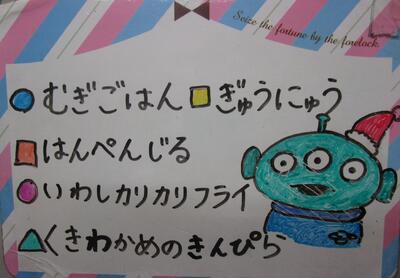 Seize the fortune by the forelock.
むぎごはん ぎゅうにゅう
はんぺんじる
いわしカリカリフライ
くきわかめのきんぴら